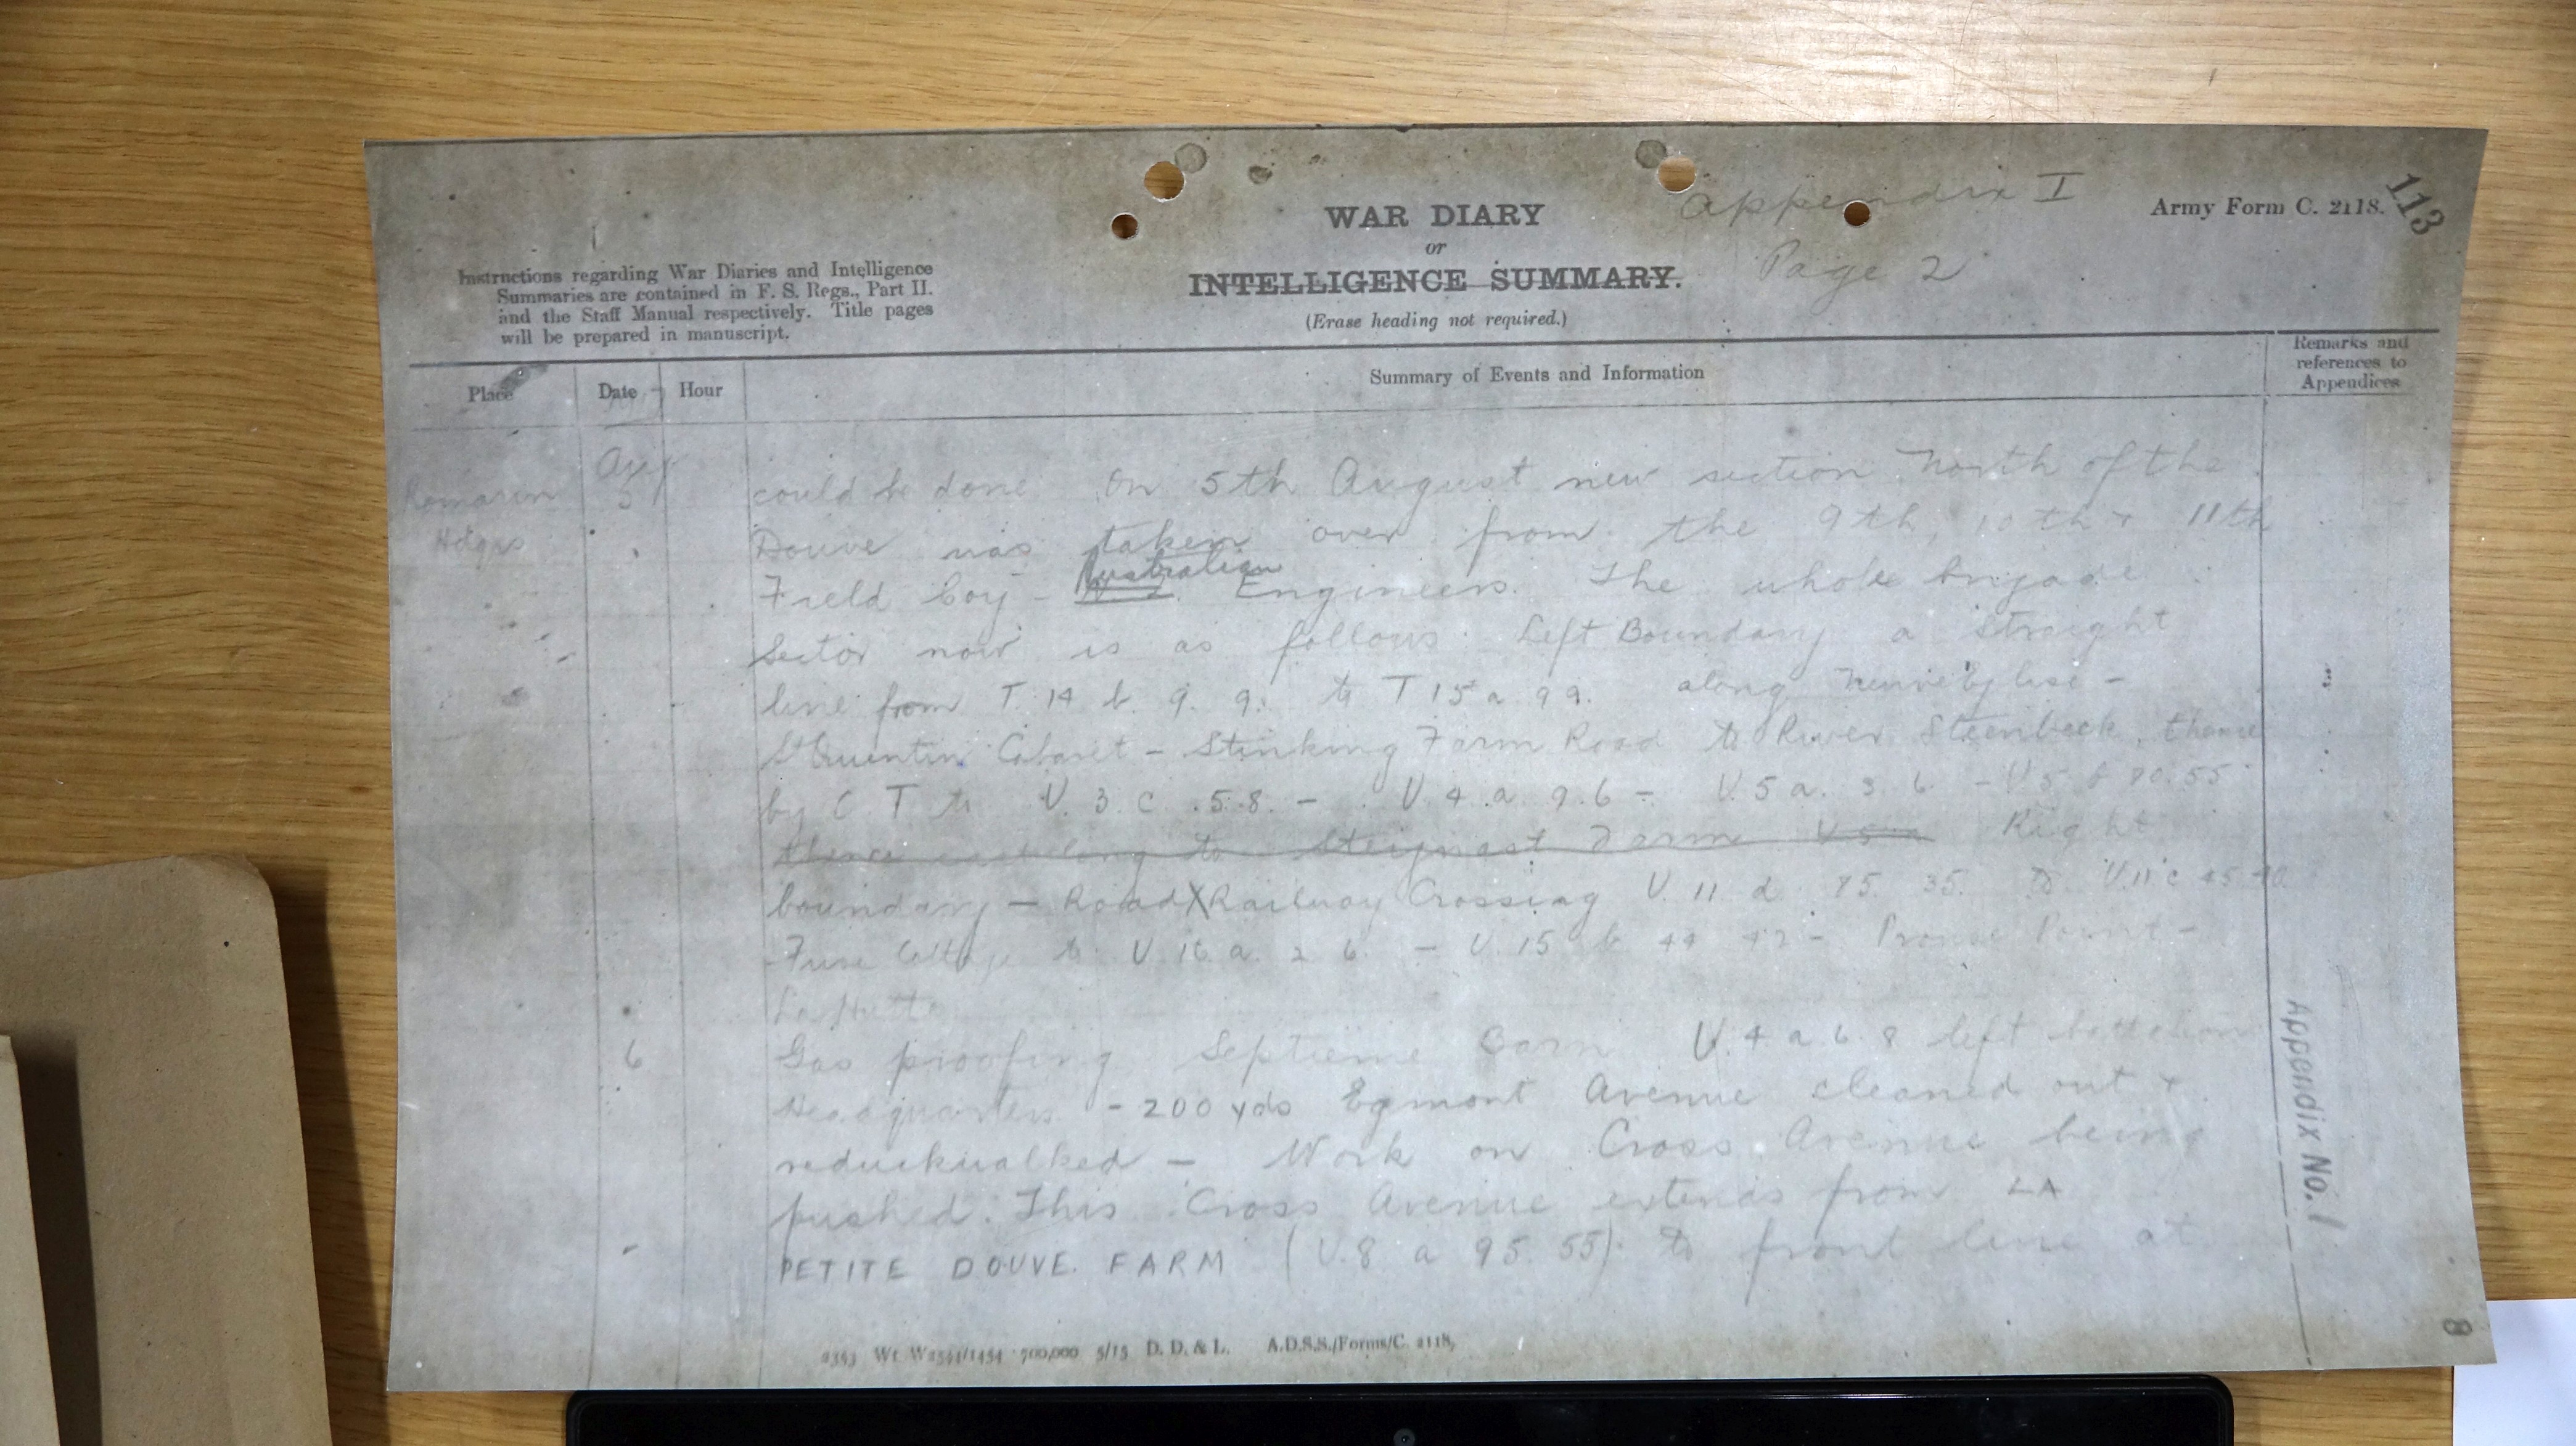 Appendix I
113
WAR DIARY
Army Form C. 2118.
or
Page 2
INTELLIGENCE SUMMARY.
(Erase heading not required.)
Instructions regarding War Diaries and Intelligence
Summaries are contained in F. S. Regs., Part II.
and the Staff Manual respectively. Title pages
will be prepared in manuscript.
Place Date Hour Summary of Events and Information Remarks and
references to
Appendices
Aug
Romarin 5 could be done On 5th August new section North of the
Hdqrs Douve was taken over from the 9th, 10th + 11th
Australian
Field Coy - Engineers. The whole brigade
Sector now is as follows Left Boundary a straight
line from T. 14 b. 9. 9. to T 15 a 9 9. along Neuve Eglise -
St Quentin Cabaret - Stinking Farm Road to River Steenbeck, thence
by C. T. to V. 3. c. 5.8. - V. 4. a. 9.6 - V. 5 a. 3. 6. - V 5 b 80.55
thence to Farm Right
boundary - Road X Railway Crossing V. 11 d 85. 35. to V.11 c 45
Fuse Cottage to V. 16. a. 2 6. - V. 15 b 44 42 - Prowse Point -
La Hutte
6 Gas proofing Septieme Barn V. 4 a. 6. 8 left battalion
Headquarters - 200 yds Egmont Avenue cleaned out +
reduckwalked - Work on Cross Avenue being
pushed. This Cross Avenue extends from LA
PETITE DOUVE FARM (U.8 a 95. 55) to front line at
Appendix No. 1
8
2353 Wt. W2544/1454 700,000 5/15 D. D. & L. A.D.S.S./Forms/C. 2118.